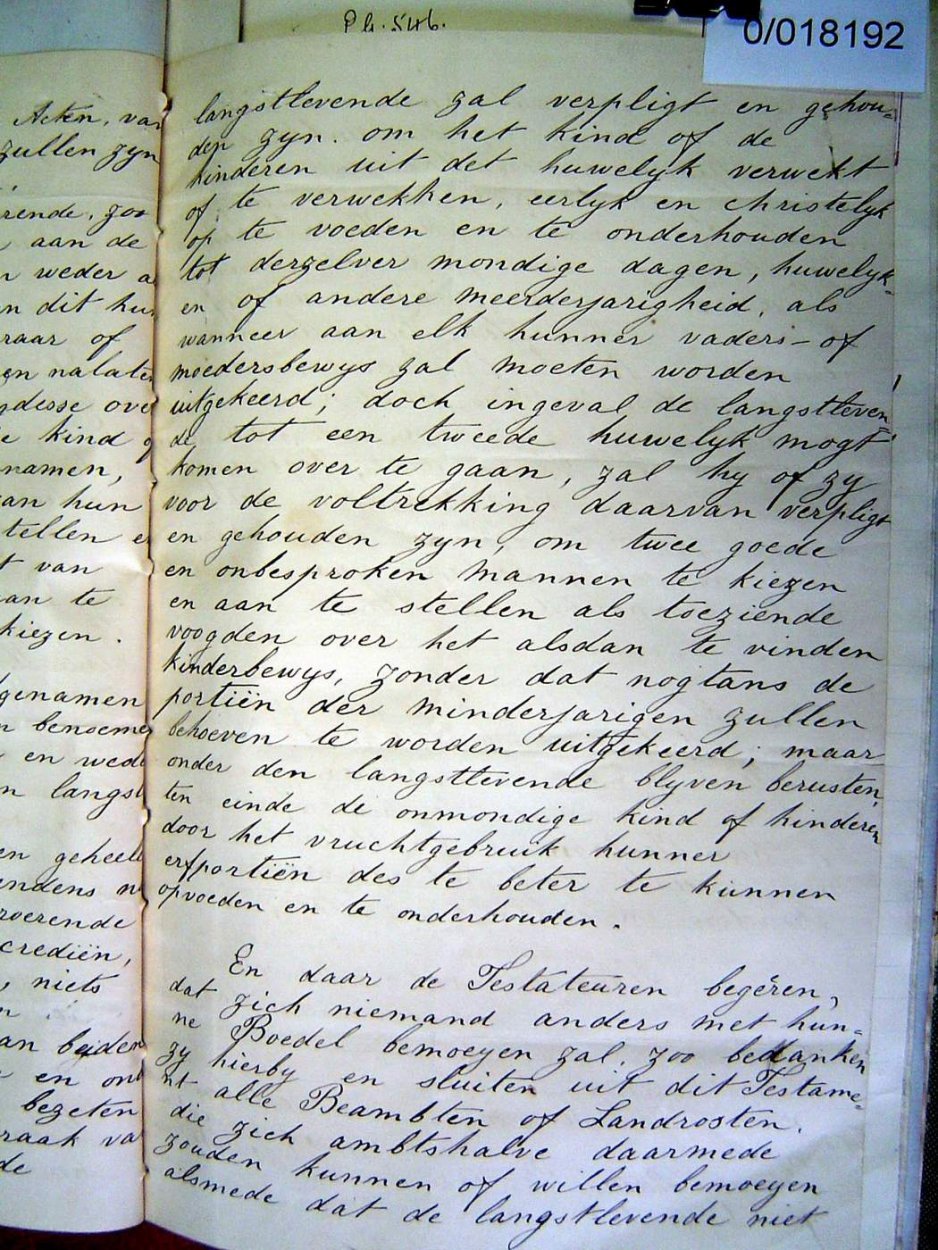 Ph. 546.
0/018192
Acten, van
zullen zyn
rende, zoo
aan de
weder a
n dit hu
raar of
en nalate
desse ove
e kind o
namen,
an hun
tellen e
t van
an te
kiezen.
genamen
n benoeme
en wed
n langst
en geheel
endens n
roerende
crediën,
, niets
an beiden
en on
bezeten
raak va
de
langstlevende zal verpligt en gehou=
den zyn. om het kind of de
kinderen uit det huwelyk verwekt
of te verwekken, eerlyk en christelyk
op te voeden en te onderhouden
tot derzelver mondige dagen, huwelyk-
en of andere meerderjarigheid, als
wanneer aan elk hunner vaders- of
moedersbewys zal moeten worden
uitgekeerd; doch ingeval de langstleven=
de tot een tweede huwelyk mogt
komen over te gaan, zal hy of zy
voor de voltrekking daarvan verpligt
en gehouden zyn, om twee goede
en onbesproken mannen te kiezen
en aan te stellen als toeziende
voogden over het alsdan te vinden
kinderbewys, zonder dat nogtans de
portiën der minderjarigen zullen
behoeven te worden uitgekeerd; maar
onder den langstlevende blyven berusten,
ten einde de onmondige kind of kinderen
door het vruchtgebruik hunner
erfportiën des te beter te kunnen
opvoeden en te onderhouden.
En daar de Testateuren begeren,
dat zich niemand anders met hun=
ne Boedel bemoeyen zal. zoo bedanken
zy hierby en sluiten uit dit Testame=
nt alle Beambten of Landrosten.
die zich ambtshalve daarmede
zouden kunnen of willen bemoeyen
alsmede dat de langstlevende niet